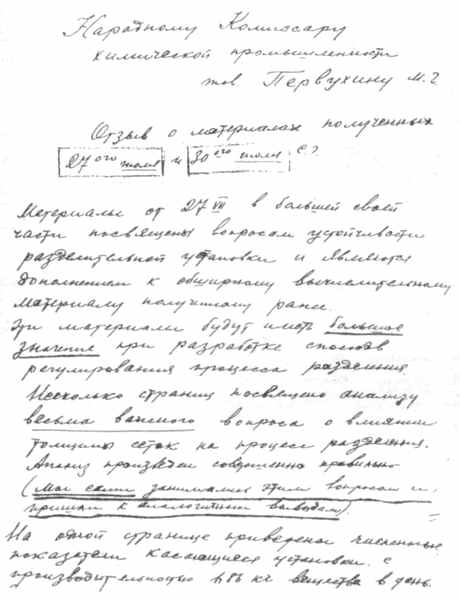 Народному Комиссару
химической промышленности
тов Первухину М.Г.
Отзыв о материалах полученных
27ого июля и 30ого июля с.г.
Материалы от 27 VII в большей своей
части посвящены вопросам устойчивости
разделительной установки и являются
дополнением к обширному вычислительному
материалу полученному ранее.
Эти материалы будут иметь большое
значение при разработке способов
регулирования процесса разделения
Несколько страниц посвящено анализу
весьма важного вопроса о влиянии
толщины сеток на процесс разделения.
Анализ произведен совершенно правильно
(мы сами занимались этим вопросом и
пришли к аналогичным выводам).
На одной странице приведены численные
показатели касающиеся установки с
производительностью кг вещества в день.